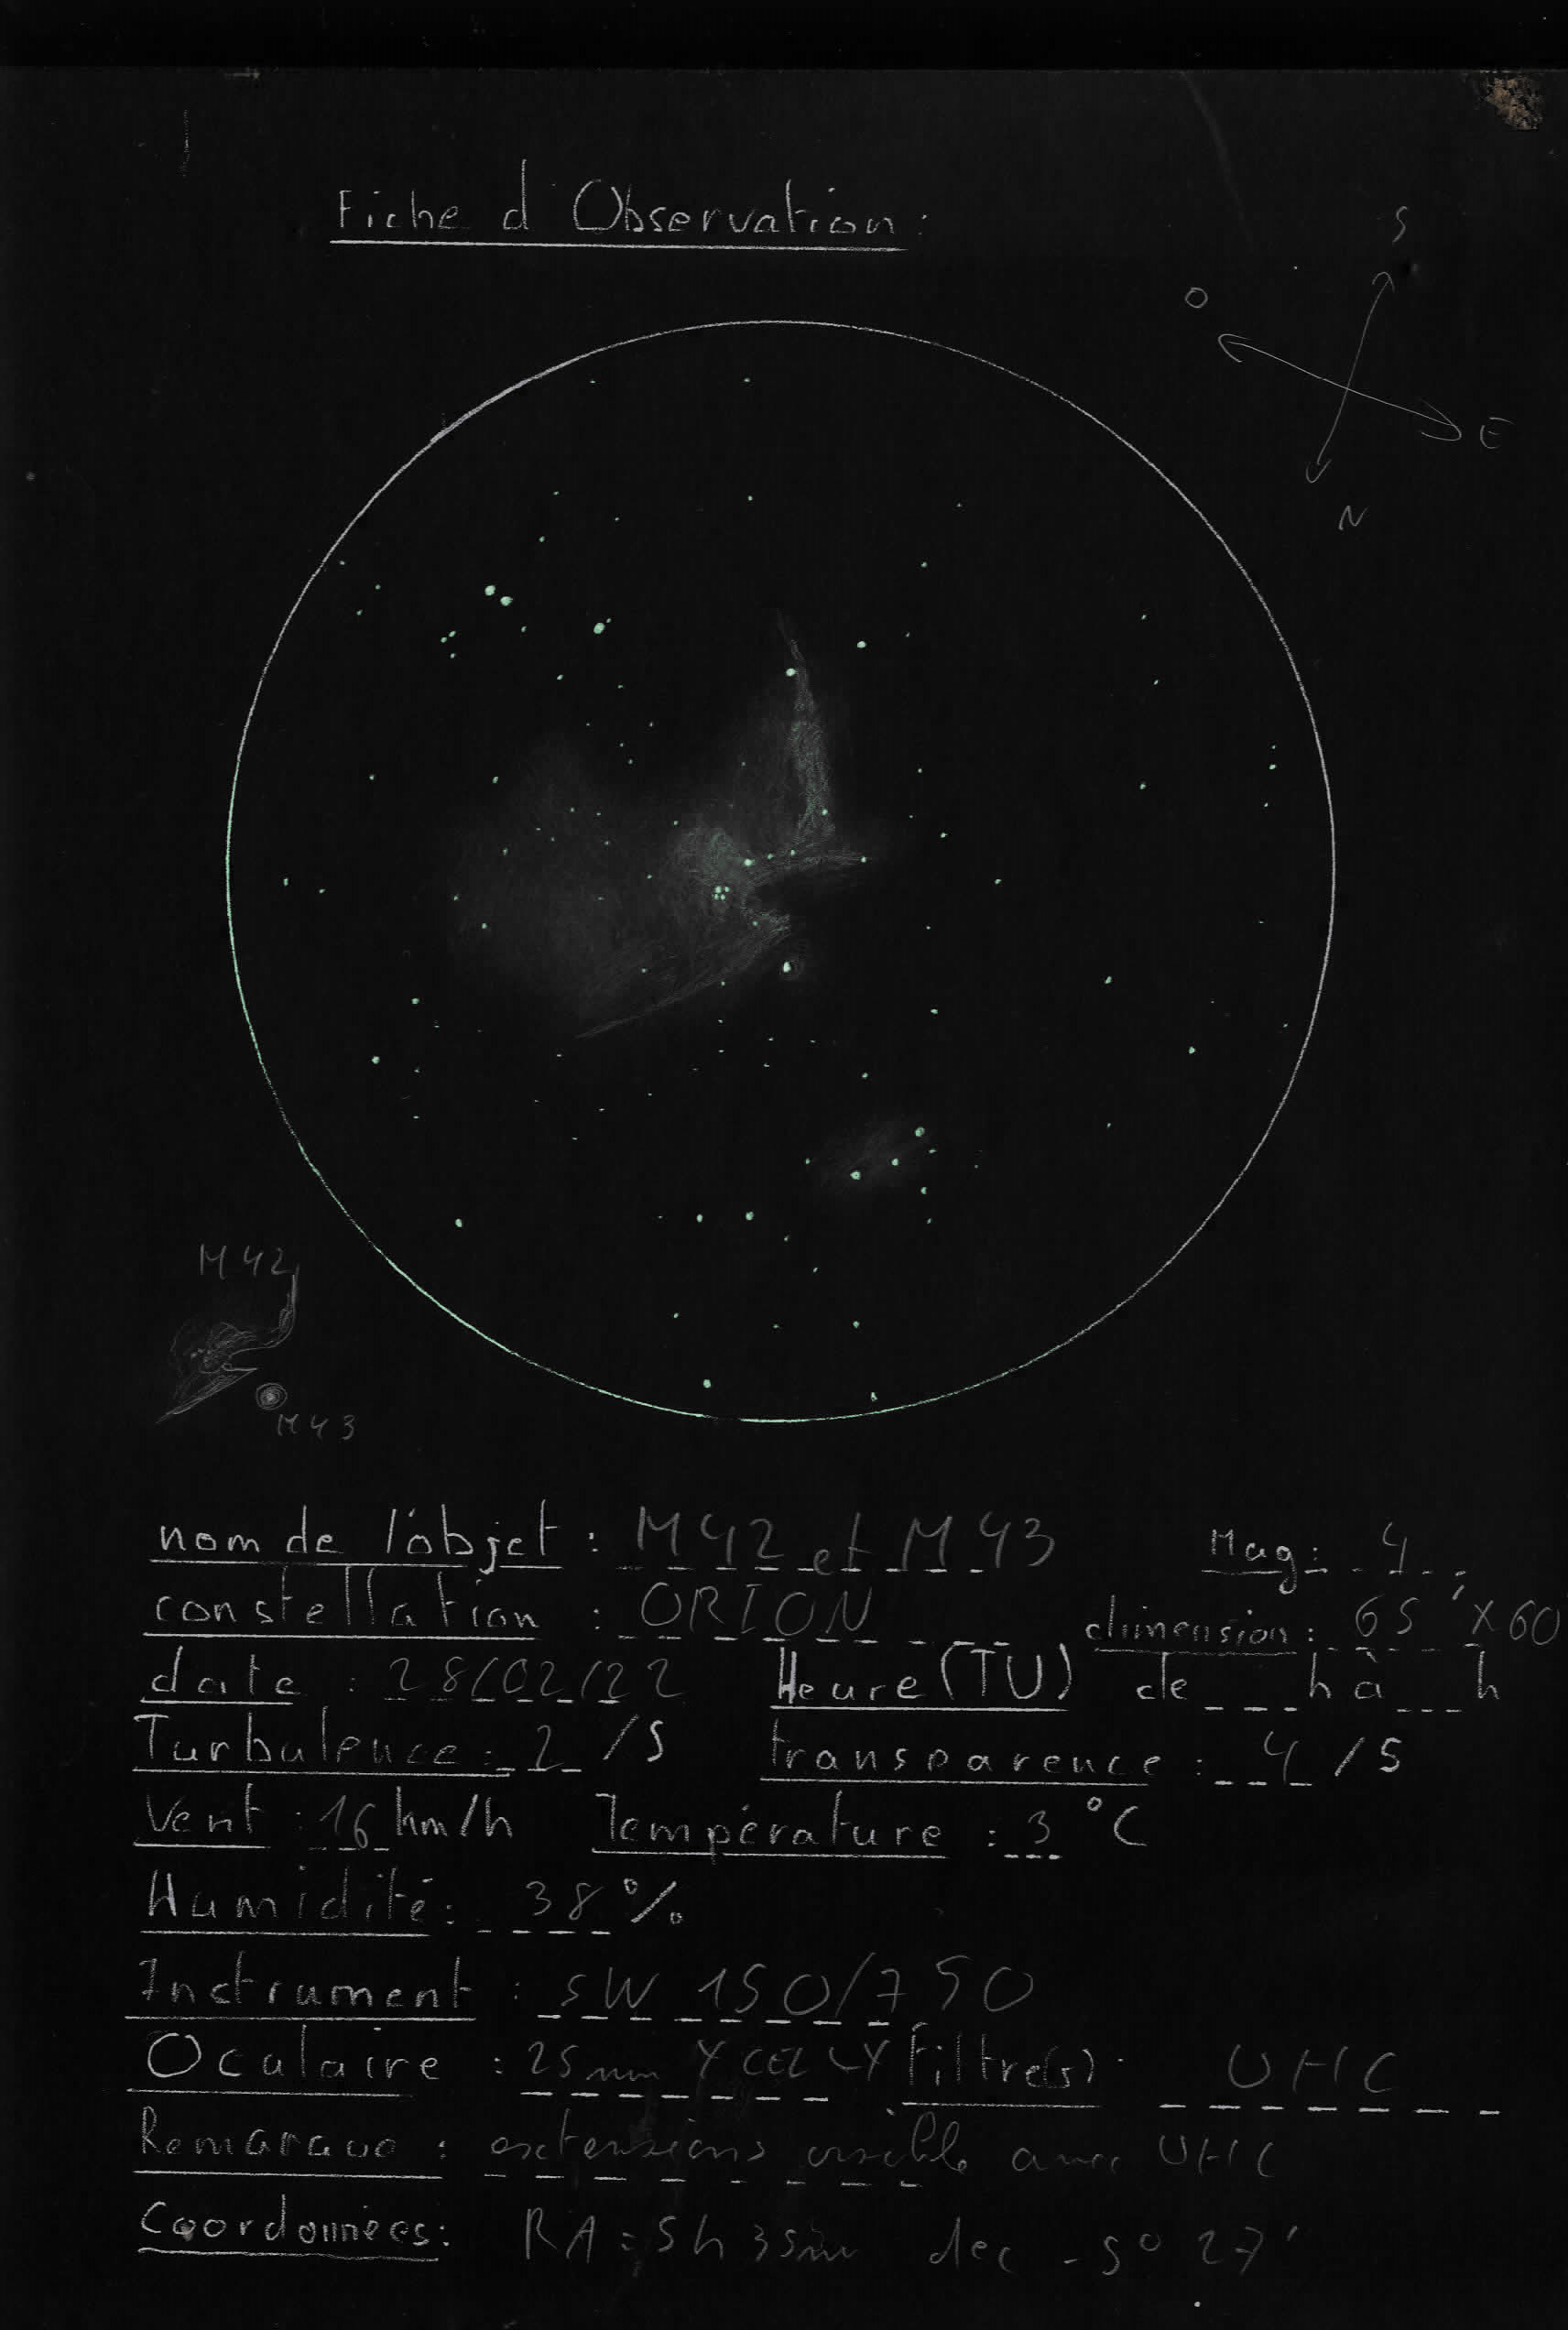 Fiche d'Observation :
S
O
E
N
M42
M43
nom de l'objet : M42 et M43 Mag : 4
constellation : ORION dimension : 65' x 60
date : 28/02/22 Heure (TU) de h à h
Turbulence : 2 /5 transparence : 4 /5
Vent : 16 km/h Température : 3 °C
Humidité : 38 %
Instrument : SW 150/750
Oculaire : 25mm XCEL LX Filtre(s) : UHC
Remarque : extensions visible avec UHC
Coordonnées : RA = 5h 35m dec -5° 27'